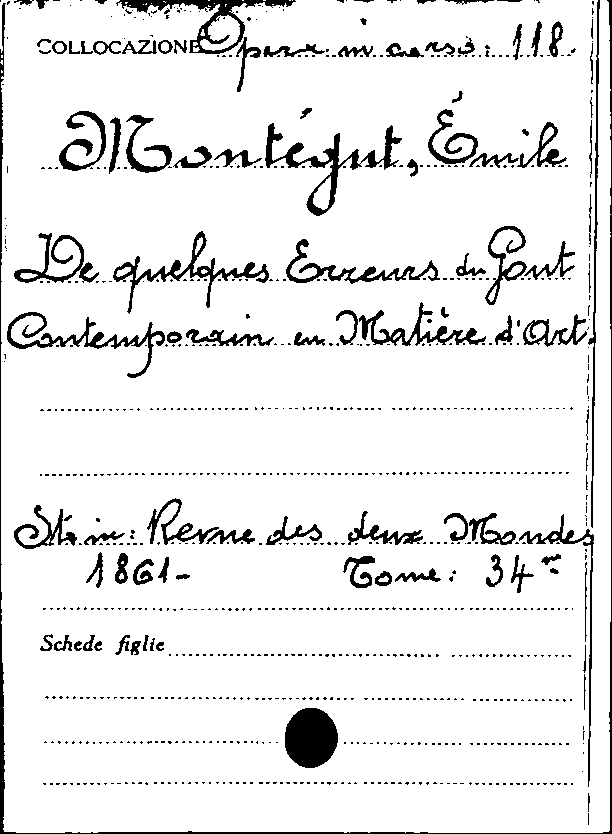 COLLOCAZIONE Opera in corso: 118.
Montégut, Émile
De quelques Erreurs du Gout
Contemporain en Matière d'Art.
Sta in: Revue des deux Mondes
1861- Tome: 34
Schede figlie